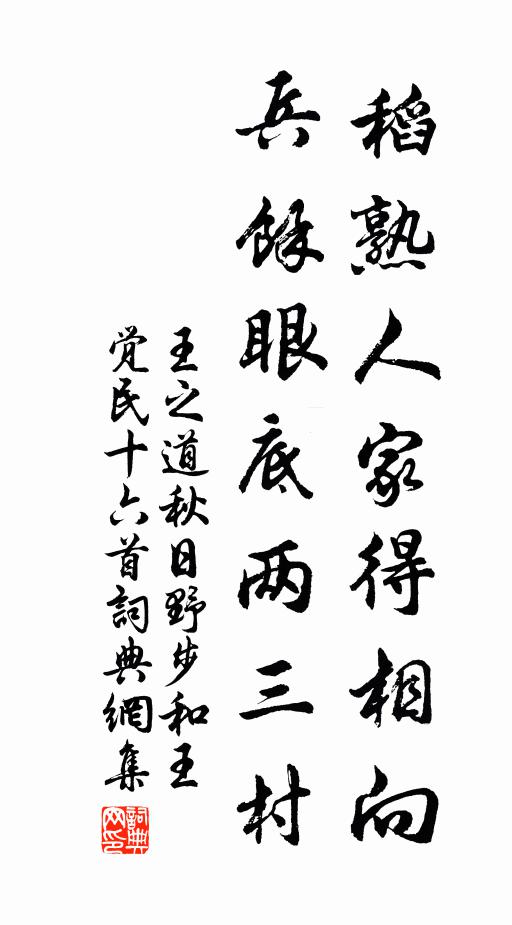 稻熟人家得相向
兵餘眼底两三村
王之道秋日野步和王
觉民十六首詞典網集
詞典
网印